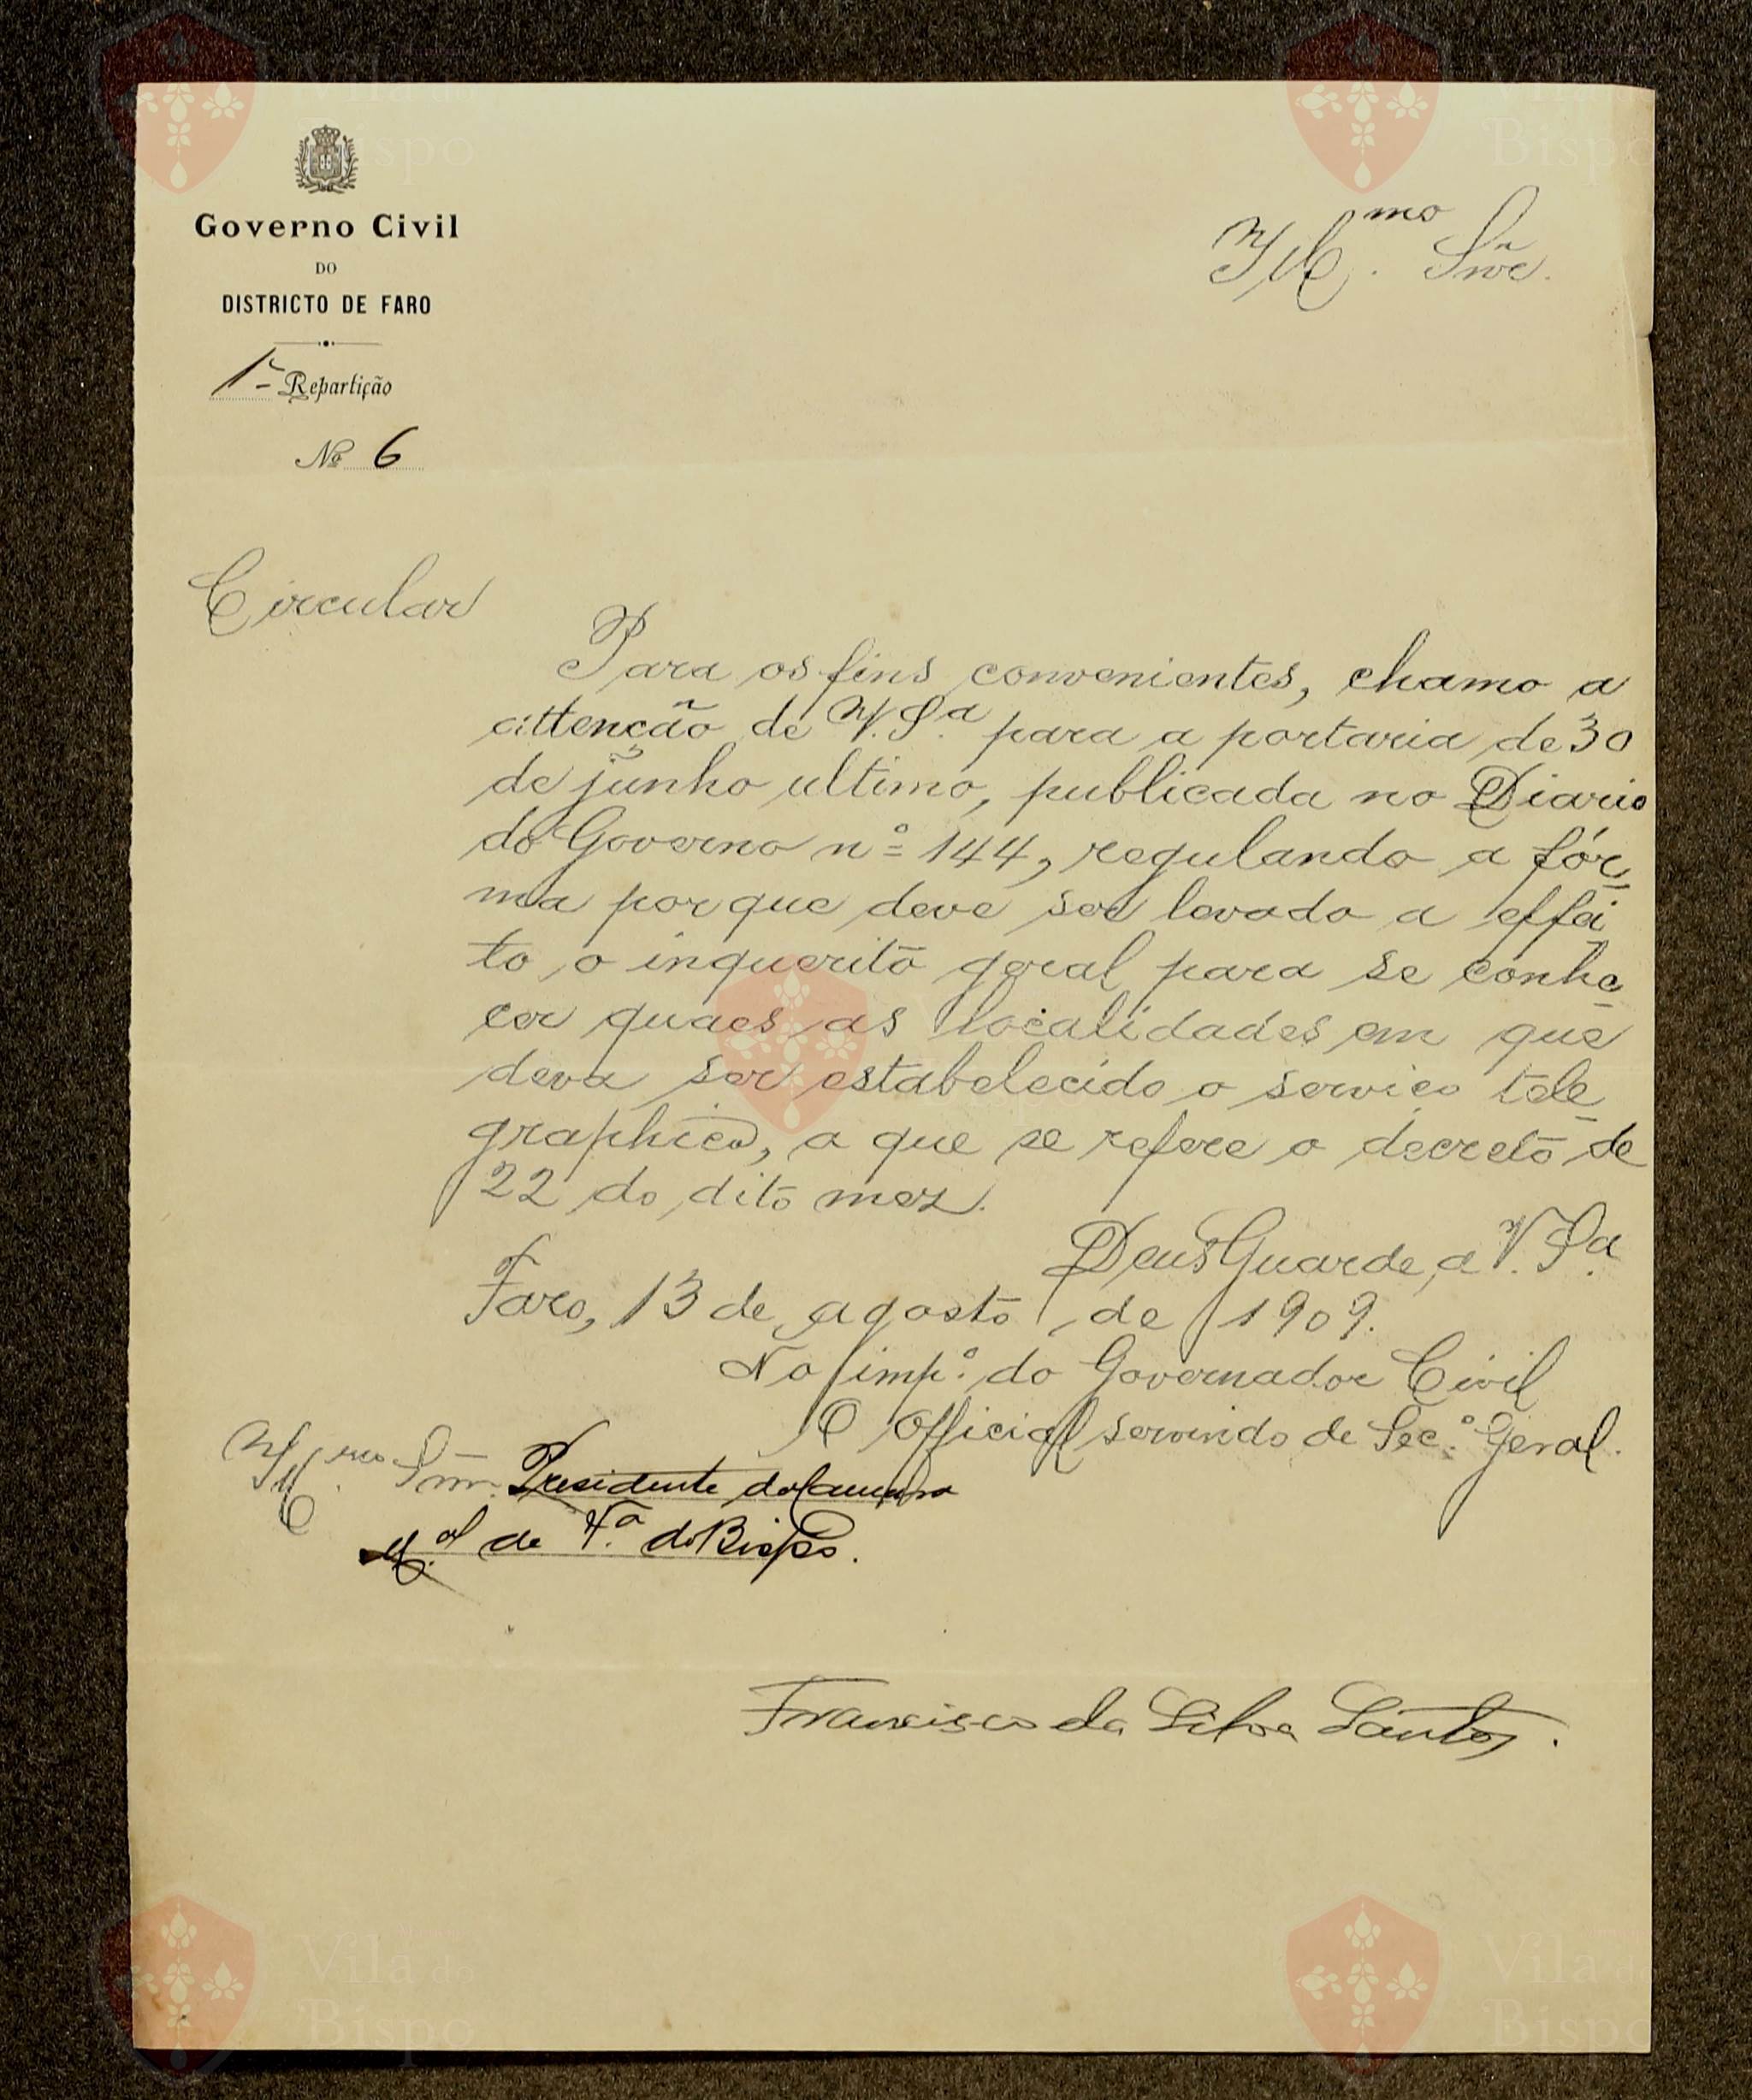 Governo Civil
DO
DISTRICTO DE FARO
1ª Repartição
Nº 6
Illmo. Snr.
Circular
Para os fins convenientes, chamo a
attenção de V. Sª para a portaria de 30
de junho ultimo, publicada no Diario
do Governo nº 144, regulando a fór-
ma porque deve ser levado a effei-
to o inquerito geral para se conhe-
cer quaes as localidades em que
deva ser estabelecido o serviço tele-
graphico, a que se refere o decreto de
22 do dito mez.
Deus Guarde a V. Sª
Faro, 13 de agosto de 1909.
No impº. do Governador Civil
O Official servindo de Secº. Geral.
Illmo. Snr. Presidente da Camara
Mal. de Vª. do Bispo.
Francisco da Silva Santos.
Vila do
Bispo
Vila do
Bispo